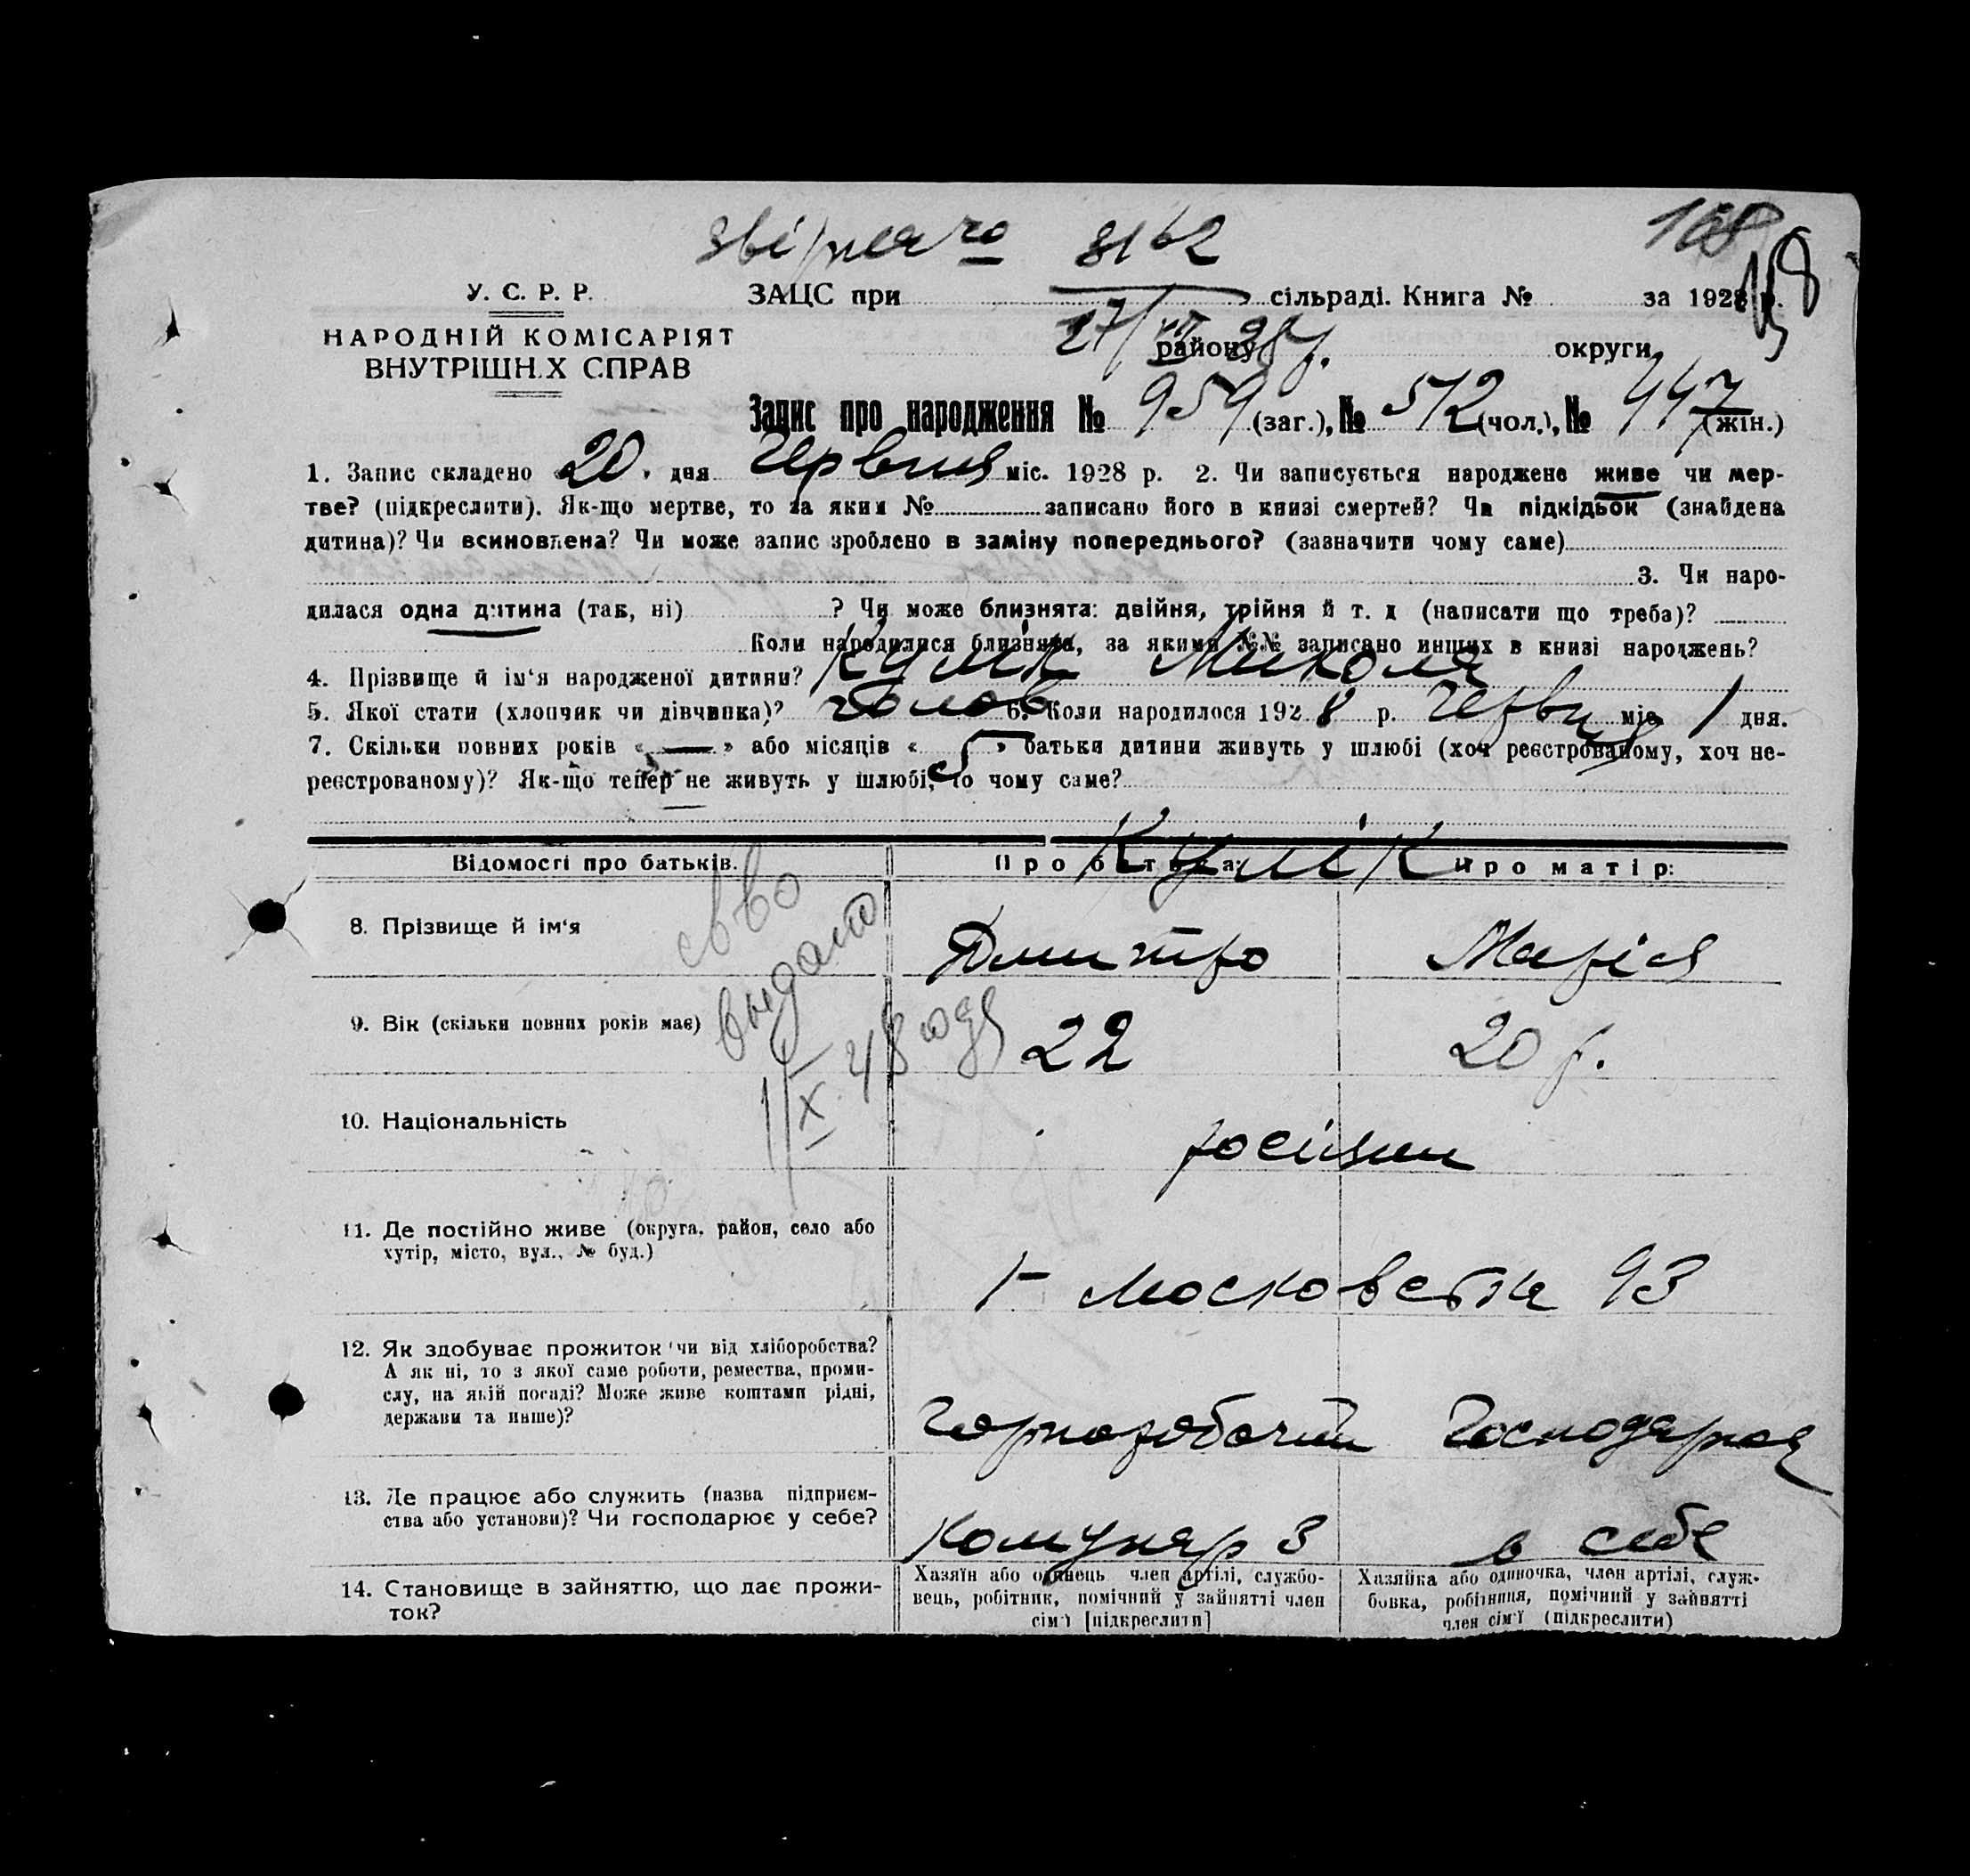 168
У. С. Р. Р.
ЗАЦС при сільраді. Книга № за 1928 р.
158
НАРОДНІЙ КОМІСАРІЯТ
ВНУТРІШН.Х СПРАВ
району округи
Запис про народження № 959 (заг.), № 512 (чол.), № 447 (жін.)
1. Запис складено „20" дня Червня міс. 1928 р. 2. Чи записується народжене живе чи мер-
тве? (підкреслити). Як-що мертве, то за яким № записано його в книзі смертей? Чи підкідьок (знайдена
дитина)? Чи всиновлена? Чи може запис зроблено в заміну попереднього? (зазначити чому саме)
3. Чи наро-
дилася одна дитина (так, ні) ? Чи може близнята: двійня, трійня й т. д (написати що треба)?
Коли народилися близнята, за якими №№ записано инших в книзі народжень?
4. Прізвище й ім'я народженої дитини? Кулік Микола
5. Якої стати (хлопчик чи дівчинка)? чолов 6. Коли народилося 1928 р. Червня міс. 1 дня.
7. Скільки повних років « — » або місяців « 5 » батьки дитини живуть у шлюбі (хоч реєстрованому, хоч не-
реєстрованому)? Як-що тепер не живуть у шлюбі, то чому саме?
Відомості про батьків. Про батька: Про матір:
Кулік
8. Прізвище й ім'я Дмитро Марія
9. Вік (скільки повних років має) 22 20 р.
свво
выдано
1/X 48 года
10. Національність росіяни
11. Де постійно живе (округа, район, село або
хутір, місто, вул., № буд.)
1 – Московська 93
12. Як здобуває прожиток чи від хліборобства?
А як ні, то з якої саме роботи, ремества, проми-
слу, на якій посаді? Може живе коштами рідні,
держави та инше)?
Чорноробочий Господарная
13. Де працює або служить (назва підприєм-
ства або установи)? Чи господарює у себе?
Комунар 3 в себе
14. Становище в зайняттю, що дає прожи-
ток?
Хазяїн або одинець член артілі, службо-
вець, робітник, помічний у зайнятті член
сім'ї [підкреслити]
Хазяйка або одиночка, член артілі, служ-
бовка, робітниця, помічний у зайнятті
член сім'ї (підкреслити)